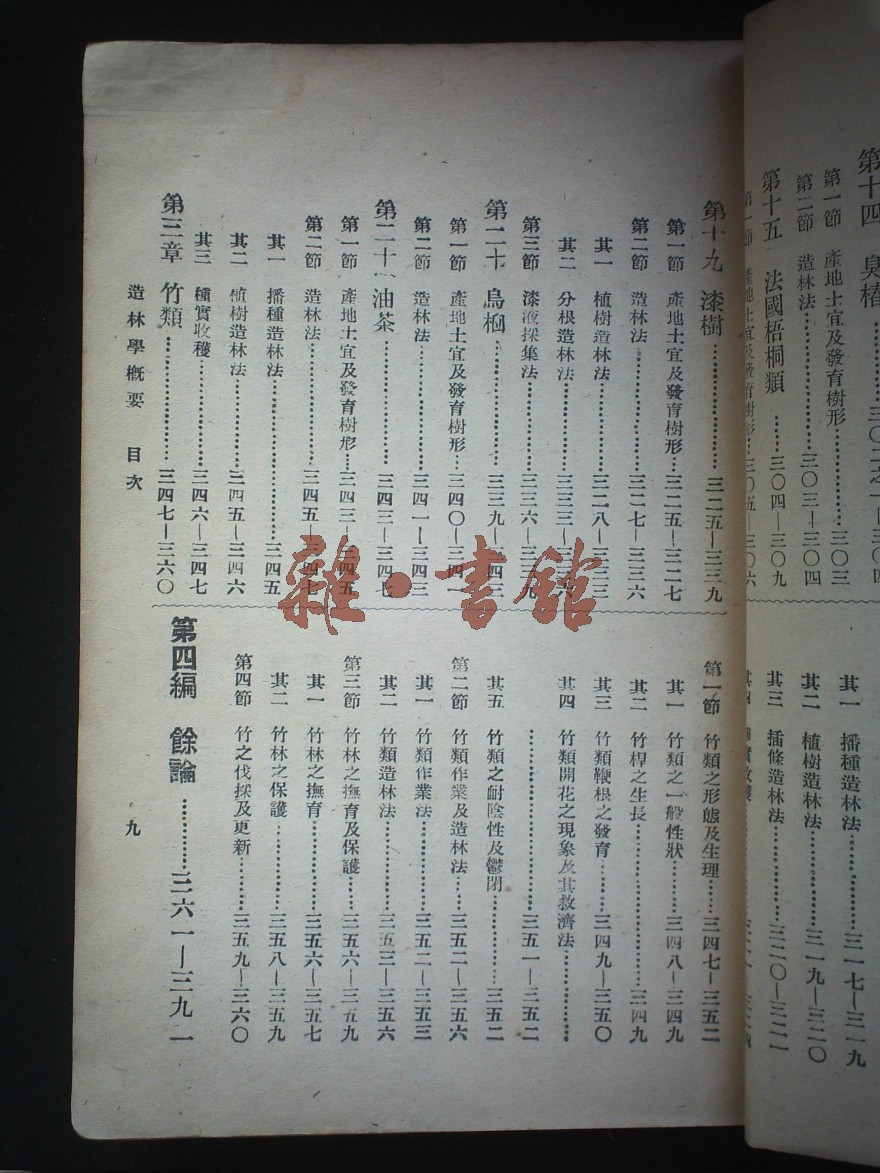 第十四 臭椿……三〇二之一—三〇四
第一節 產地土宜及發育樹形……三〇三
第二節 造林法……三〇三—三〇四
第十五 法國梧桐類……三〇四—三〇九
第一節 產地土宜及發育樹形…三〇五—三〇六
其一 播種造林法……三一七—三一九
其二 植樹造林法……三一九—三二〇
其三 插條造林法……三二〇—三二一
其四
第十九 漆樹……三二五—三三九
第一節 產地土宜及發育樹形…三二五—三二七
第二節 造林法……三二七—三三六
其一 植樹造林法……三二八—三三三
其二 分根造林法……三三三—三三六
第三節 漆液採集法……三三六—三三九
第二十 烏桕……三三九—三四三
第一節 產地土宜及發育樹形…三四〇—三四一
第二節 造林法……三四一—三四三
第二十一 油茶……三四三—三四七
第一節 產地土宜及發育樹形…三四三—三四五
第二節 造林法……三四五—三四七
其一 播種造林法……三四五
其二 植樹造林法……三四五—三四六
其三 種實收穫……三四六—三四七
第三章 竹類……三四七—三六〇
第一節 竹類之形態及生理……三四七—三五二
其一 竹類之一般性狀……三四八—三四九
其二 竹桿之生長……三四九
其三 竹類鞭根之發育……三四九—三五〇
其四 竹類開花之現象及其救濟法……
……三五一—三五二
其五 竹類之耐陰性及鬱閉……三五二
第二節 竹類作業及造林法……三五二—三五六
其一 竹類作業法……三五二—三五三
其二 竹類造林法……三五三—三五六
第三節 竹林之撫育及保護……三五六—三五九
其一 竹林之撫育……三五六—三五七
其二 竹林之保護……三五八—三五九
第四節 竹之伐採及更新……三五九—三六〇
第四編 餘論……三六一—三九一
造林學概要 目次 九
雜·書館